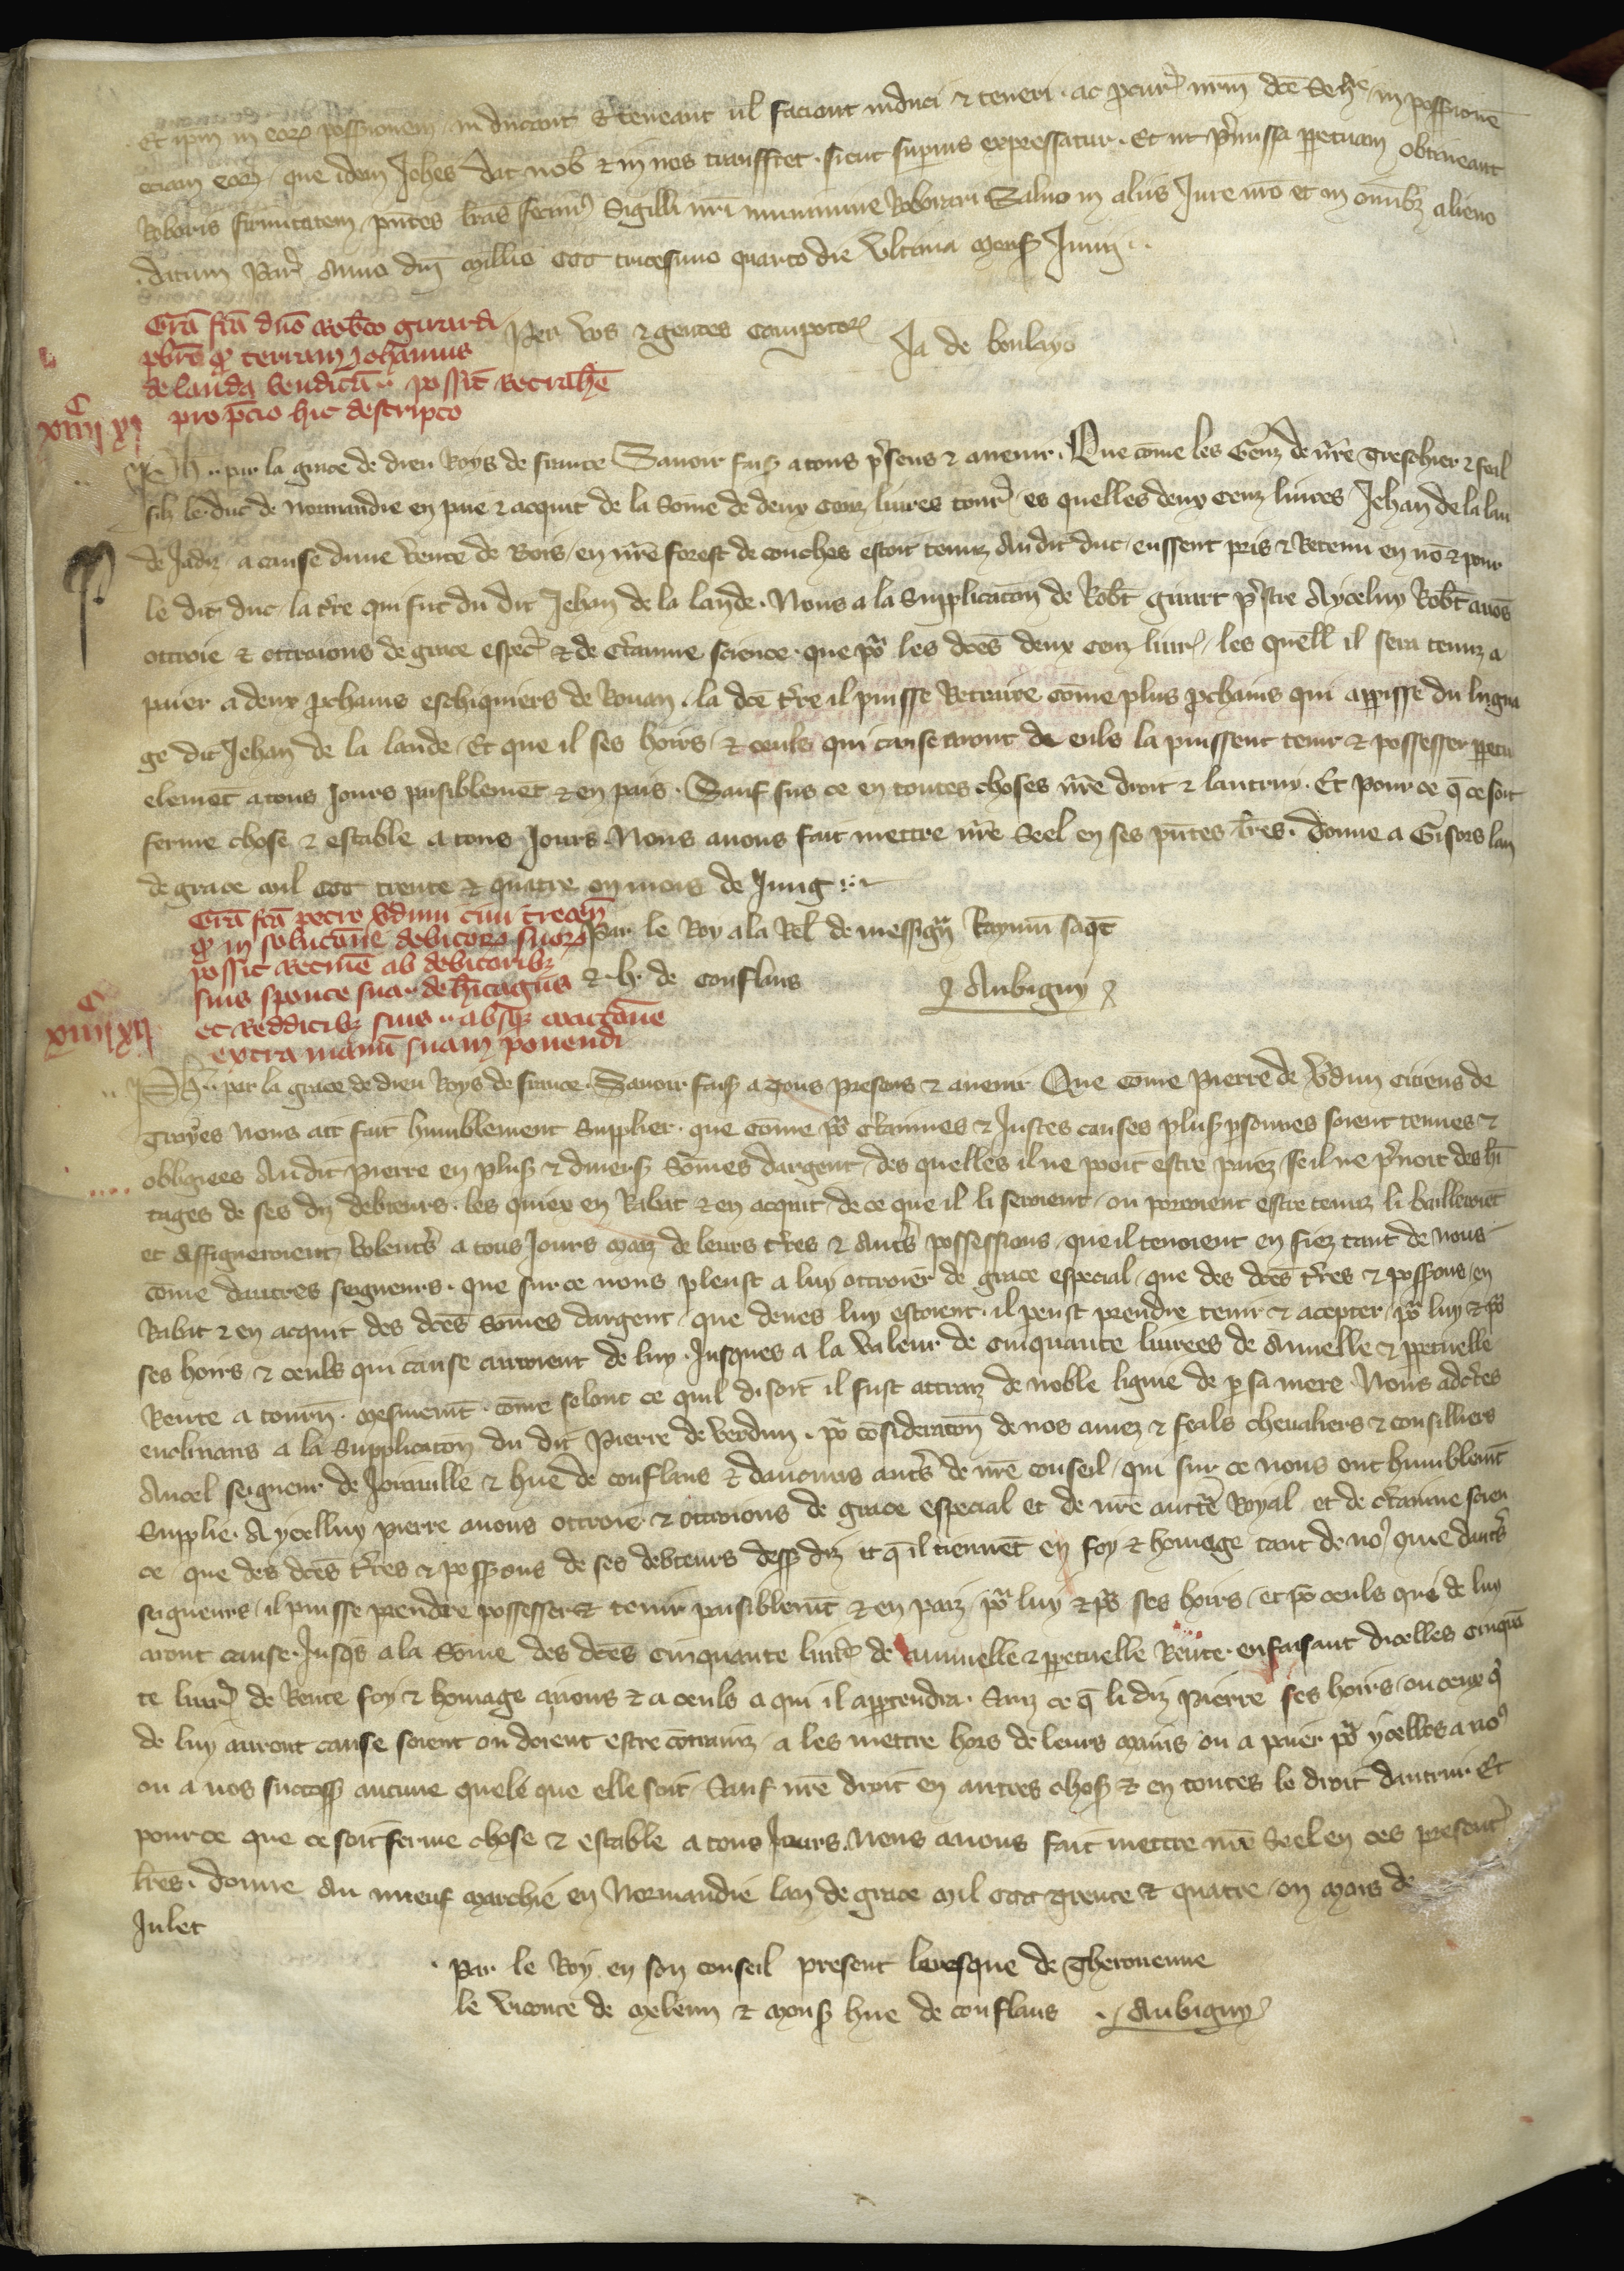 Et ipm in eorꝝ possessionem inducant & teneant ul faciant induci & teneri . ac pcur nrm dce Seneƚ in possessionē
eciam eorꝝ que idem Johes dat nob & in nos transffert . sicut superius expressatur . Et ut pmissa ppetuam obtineant
Roboris firmitatem pntes lras fecimꝰ Sigilli nri munimine Roborari Saluo in aliis Jure nro et in omibꝫ alieno
datum Parꝭ Anno dni millio CCC tricesimo quarto die ultima mensꝭ Junii
Grā fcā dno robto girardi
pbrō qꝫ terram Johannis
de landa venditā possit retrahē
pro pcio hic descripto
Per vos & gentes compotorꝝ Ja de boulayo
C
xiiii xi
Ph par la grace de dieu Roys de france Sauoir faisꝭ a tous psens & auenir . Que cōme les Genz de nrē Treschier & feal
filz le duc de Normandie en paie & acquit de la sōme de deux cenz liures tourꝭ es quelles deux cenz liures Jehan de la lan
de Jadiz a cause dune vente de Bois en nrē forest de conches estoit tenuz au dit duc eussent pris & Retenu en nō & pour
le dit duc la tre qui fut du dit Jehan de la lande . Nous a la Supplicacōn de Robt girart pstre Aycelui Robt auōs
ottroie & ottroions de grace espec & de ctainne science que po les dces deux cenz liurꝭ les quelƚ il sera tenuz a
paier a deux pchains eschiquiers de Rouan . la dce tre il puisse Retraire cōme plus pchains qui appisse du ligna
ge dit Jehan de la lande Et que il ses hoirs & ceuls qui cause auront de euls la puissent tenir & possesser ppetu
elemēt a tous Jours paisiblemēt & en pais . Sauf sus ce en toutes choses nrē droit & lautruy . Et pour ce q̄ ce soit
ferme chose & estable a tous Jours . Nous auons fait mettre nrē Seel en ses pntes lres . donne a Gisors lan
de grace mil CCC trente & quatre ou mois de Jung
Grā fcā petro vduni ciui trecen
qꝫ in solucōne debitorꝝ suorꝝ
possit recipē ab debitoribꝫ
suis sponte sua de hitagiis
et Redditibꝫ suis absqꝫ coactōne
extra manū suam ponendi
Par le Roy a la Reƚ de messigrꝭ Raymū saqt
& . h . de conflans Aubigny
C
xiiii xii
Ph par la grace de dieu Roys de france . Sauoir faisꝭ a Tous presens & auenir Que cōme Pierre de Vdun citiens de
Troyes nous ait fait humblement Supplier . que cōme po ctainnes & Justes causes plusꝭ psonnes soient tenues &
obligiees Au dit Pierre en plusꝭ & diuersꝭ sōmes dargent des quelles il ne pooit estre paiez se il ne pnoit des hi
tages de ses diz debteurs . les quiex en Rabat & en acquit de ce que il li seroient ou porroient estre tenuz li bailleroiēt
et assigneroient volentꝭ a tous Jours maiz de leurs tres & autꝭ possessions que il tenoient en fiez tant de nous
cōme dautres seigneurs . que sur ce nous pleust a luy ottroier de grace especial que des dces tres & possons en
Rabat & en acquit des dces sōmes dargent que deues luy estoient il peust prendre tenir & acepter po luy & po
ses hoirs & ceuls qui cause auroient de luy . Jusques a la valeur de cinquante liurees de Annuelle & ppetuelle
Rente a tourn . mesmemt cōme selonc ce quil disoit il fust attraiz de noble lignie de p sa mere Nous adctes
enclinans a la Supplicacōn du dit Pierre de verdun . po cōsideracōn de nos amez & feals cheualiers & consilliers
Ancel seigneur de Joinuille & hue de conflans & daucuns autꝭ de nrē conseil qui sur ce nous ont humblemt
Supplie . Aycelluy pierre auons ottroie & ottroions de grace especial et de nrē auctte Royal et de ctainne scien
ce que des dces tres & possons de ses debteurs dessꝭ diz & q̄ il tiennēt en foy & homage tant de noꝰ que dautꝭ
seigneurs il puisse prendre possesser & tenir paisiblemt & en paiz po luy & po ses hoirs et po ceuls qui de luy
aront cause . Jusqs a la sōme des dces cinquante liurꝭ de annuelle & ppetuelle Rente . en faisant dicelles cinquā
te liurꝭ de Rente foy & homage a nous & a ceuls a qui il appendra . Sanz ce q̄ li diz Pierre ses hoirs ou ceux q
de luy auront cause soient ou doient estre cōtrainz a les mettre hors de leurs mains ou a paier po ycelles a noꝰ
ou a nos successꝭ aucune quele que elle soit . Sauf nrē droit en autres chosꝭ & en toutes le droit dautrui . Et
pour ce que ce soit ferme chose & estable a tous Jours . Nous auons fait mettre nrē Seel en ces presentꝭ
lres . donne au nueuf marchie en Normandie lan de grace mil CCC trente & quatre ou mois de
Julet
Par le Roy en son conseil present leuesque de Therouenne
le viconte de meleun & monsꝭ hue de conflans Aubigny